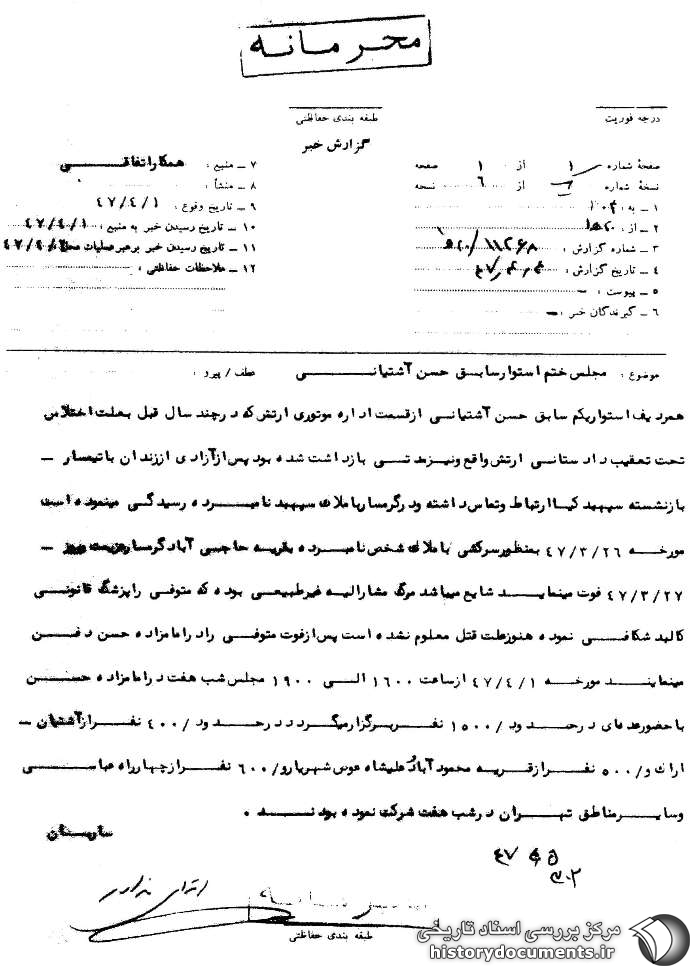 محرمانه
درجه فوریت
طبقه بندی حفاظتی
گزارش خبر
صفحهٔ شماره ۱ از ۱ صفحه
نسخهٔ شماره از ۶ نسخه
۱ ـ به :
۲ ـ از :
۳ ـ شماره گزارش : ۱۱۲۶۸
۴ ـ تاریخ گزارش :
۵ ـ پیوست : ـ
۶ ـ گیرندگان خبر : ـ
۷ ـ منبع : همکار اتفاقی
۸ ـ منشأ :
۹ ـ تاریخ وقوع : ۴۷/۴/۱
۱۰ ـ تاریخ رسیدن خبر به منبع : ۴۷/۴/۱
۱۱ ـ تاریخ رسیدن خبر برهبر عملیات
۱۲ ـ ملاحظات حفاظتی :
موضوع : مجلس ختم استوار سابق حسن آشتیانی عطف / پیرو :
همردیف استواریکم سابق حسن آشتیانی ازقسمت اداره موتوری ارتش که در چند سال قبل بعلت اختلاس
تحت تعقیب دادستانی ارتش واقع و نیز مدتی بازداشت شده بود پس از آزادی اززندان با تیمسار ـ
بازنشسته سپهبد کیا ارتباط و تماس داشته و در گرمسار باملاک سپهبد نامبرده رسیدگی مینموده است
مورخه ۴۷/۳/۲۶ بمنظور سرکشی باملاک شخص نامبرده بقریه حاجی آباد گرمسار عزیمت ـ
۴۷/۳/۲۷ فوت مینماید شایع میباشد مرگ مشارالیه غیرطبیعی بوده که متوفی را پزشگ قانونی
کالبد شکافی نموده هنوز علت قتل معلوم نشده است پس از فوت متوفی را در امامزاده حسن دفن
مینمایند مورخه ۴۷/۴/۱ از ساعت ۱۶۰۰ الی ۱۹۰۰ مجلس شب هفت در امامزاده حسن
با حضور عده‌ای در حدود /۱۵۰۰ نفر برگزار میگردد در حدود /۴۰۰ نفر از آشتیان ـ
اراک و /۵۰۰ نفر از قریه محمود آباد علیشاه عوض شهریار و /۶۰۰ نفر از چهارراه عباسی
و سایر مناطق تهران در شب هفت شرکت نموده بودند .
طبقه بندی حفاظتی
مرکز بررسی اسناد تاریخی
historydocuments.ir